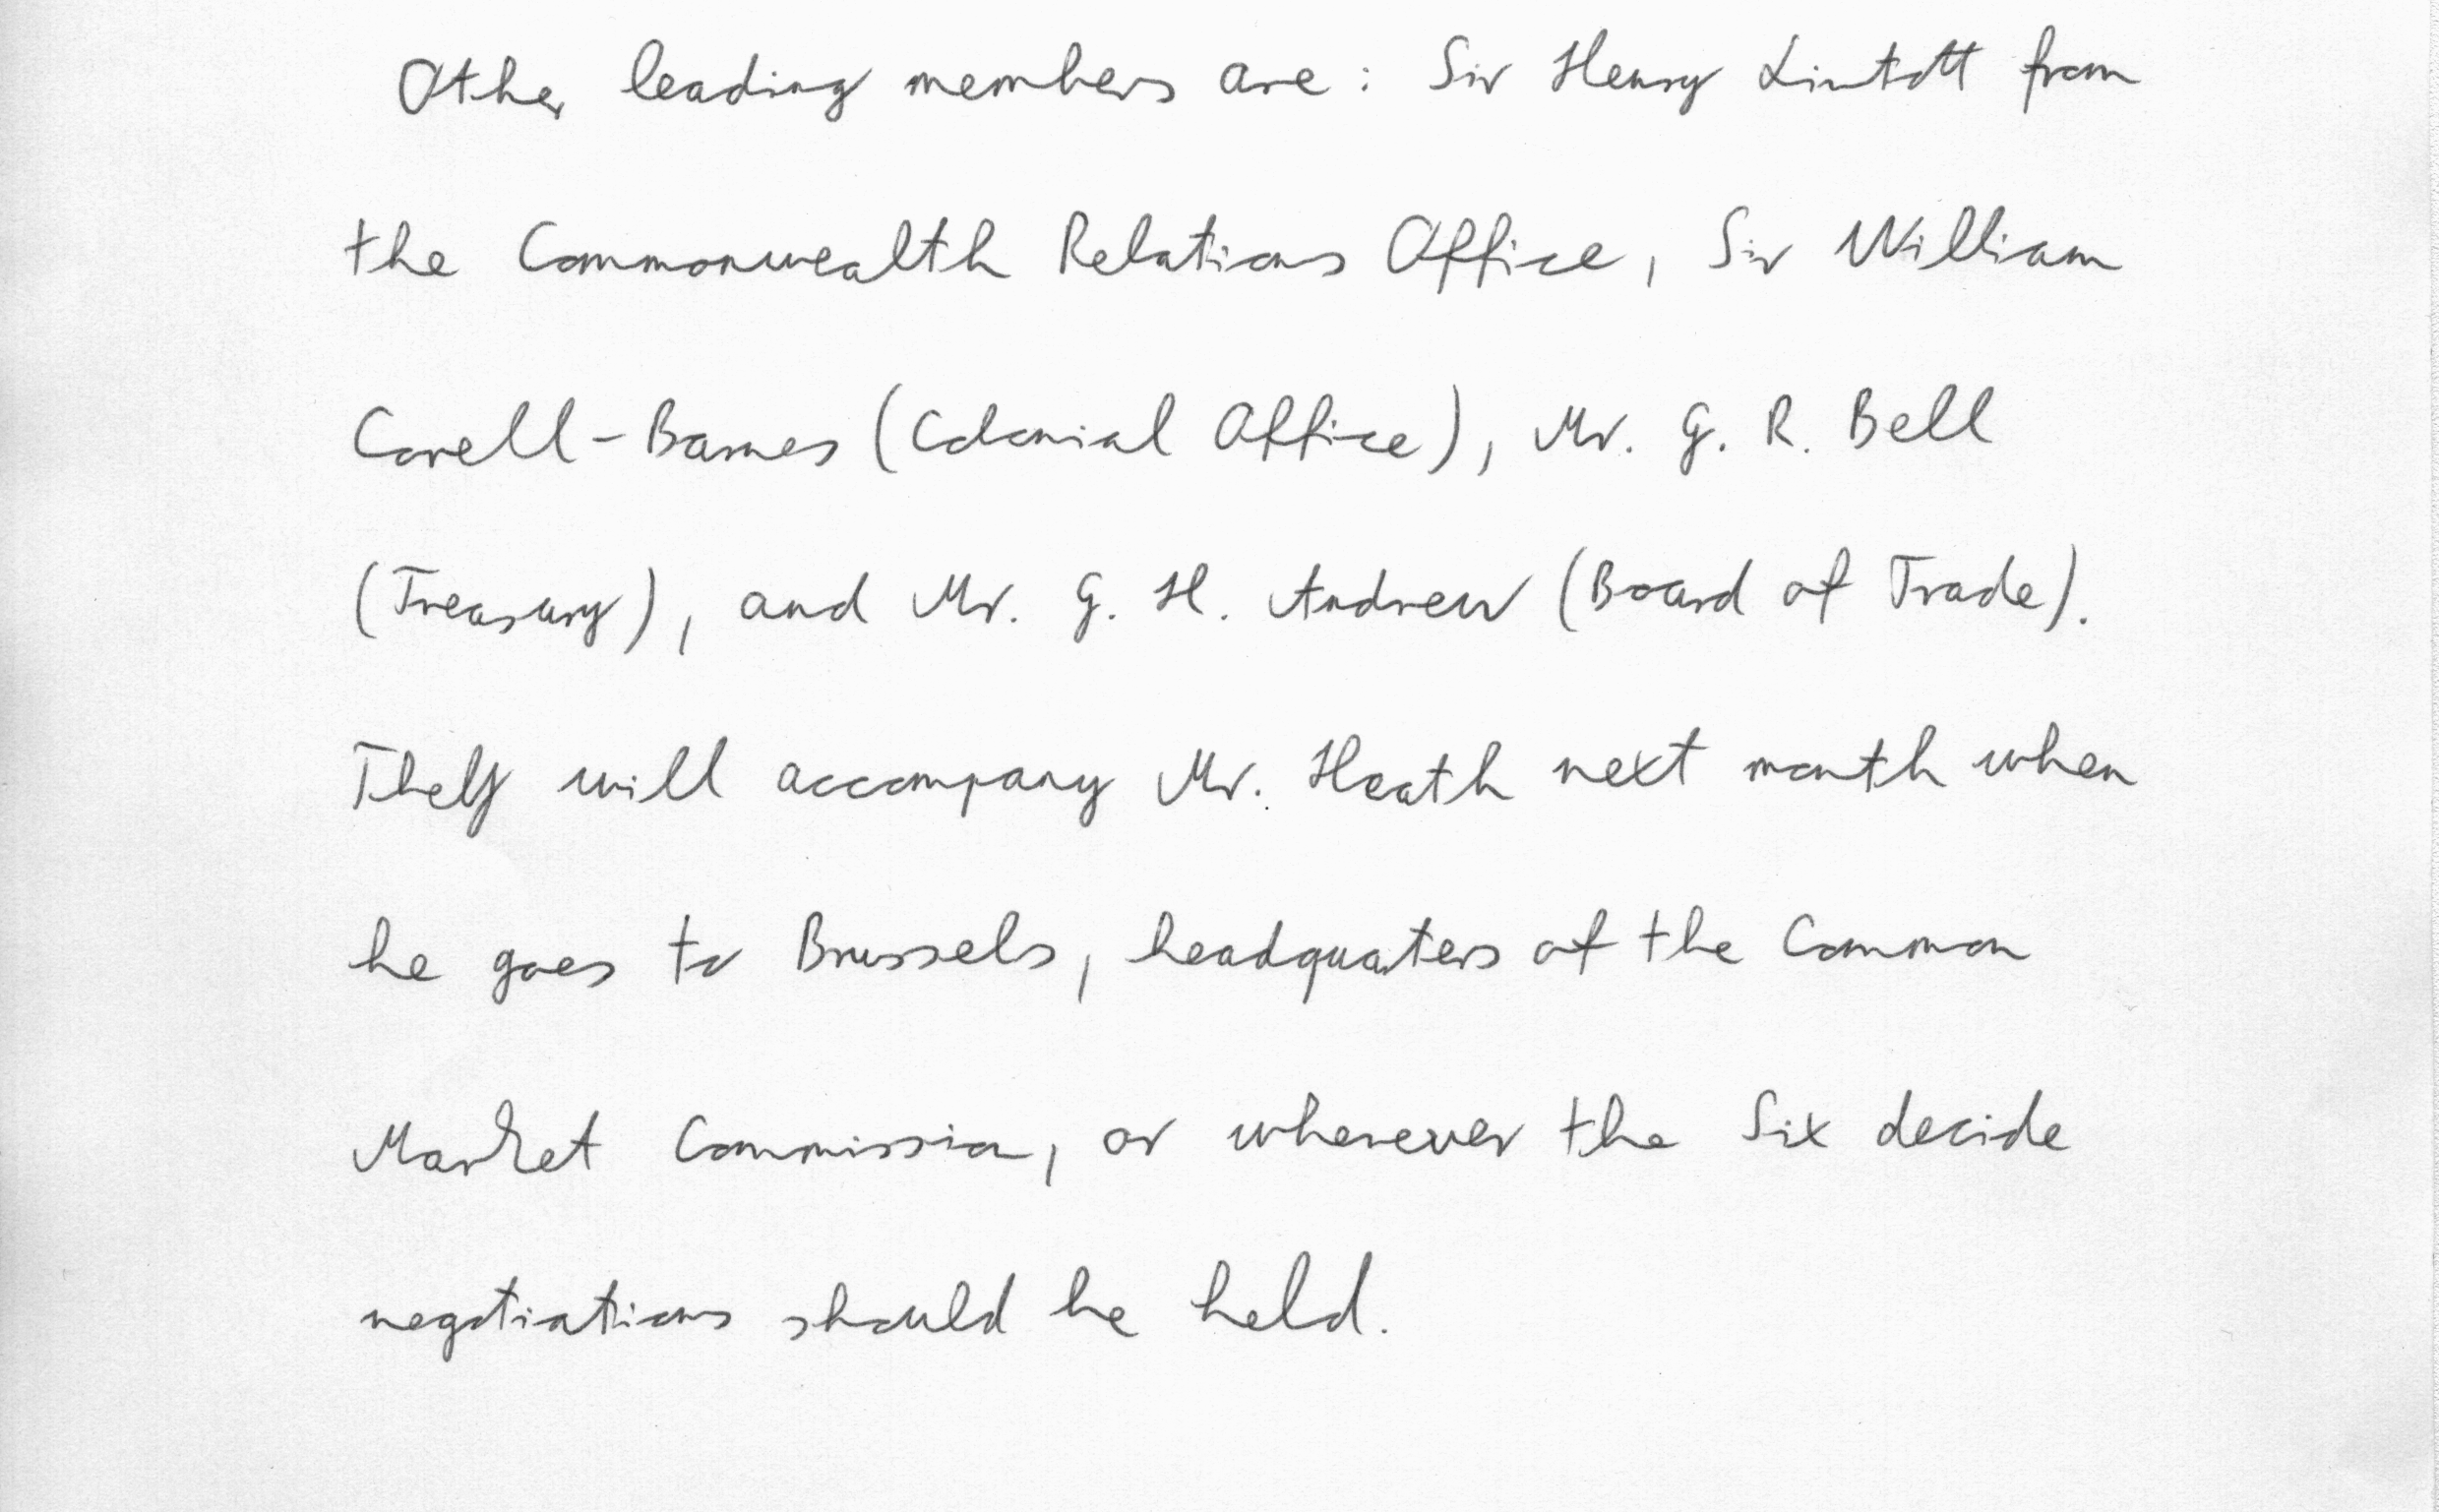 Other leading members are: Sir Henry Lintott from
the Commonwealth Relations Office, Sir William
Corell-Barnes (Colonial Office), Mr. G. R. Bell
(Treasury), and Mr. G. H. Andrew (Board of Trade).
They will accompany Mr. Heath next month when
he goes to Brussels, headquarters of the Common
Market Commission, or wherever the Six decide
negotiations should be held.